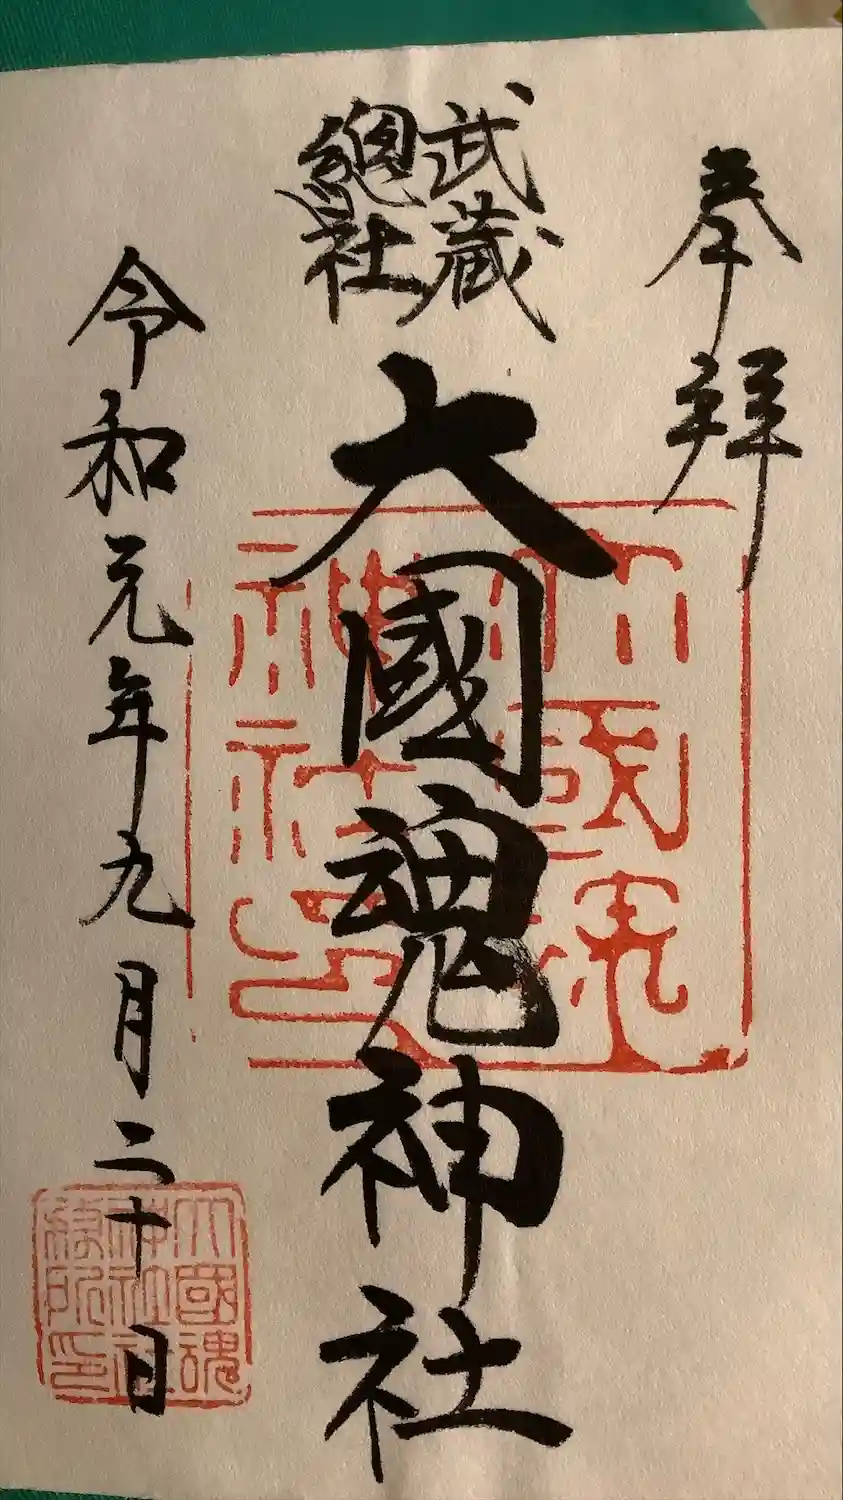 奉拝
武蔵
總社
大國魂神社
令和元年九月二十日
大國魂
神社印
大國魂
神社社
務所印